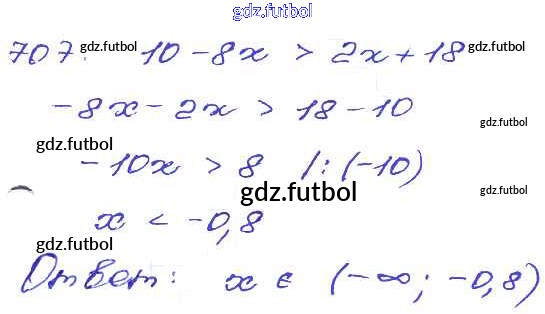 gdz.futbol
707. gdz.futbol 10 - 8x > 2x + 18 gdz.futbol
-8x - 2x > 18 - 10
gdz.futbol
gdz.futbol
-10x > 8 /:(-10)
gdz.futbol
gdz.futbol
x < -0,8
gdz.futbol
Ответ: x ∈ (-∞; -0,8)